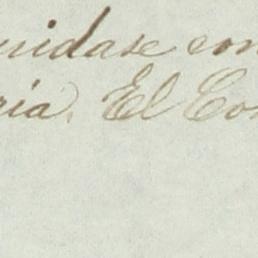 nidase con
ria. El Con